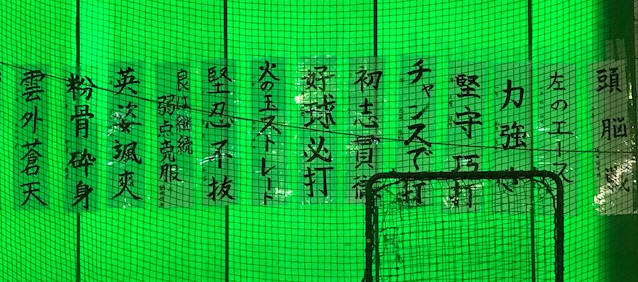 頭脳戦
左のエース
力強さ
堅守巧打
チャンスで打
初志貫徹
好球必打
火の玉ストレート
堅忍不抜
良は継続
弱点克服
英姿颯爽
粉骨砕身
雲外蒼天